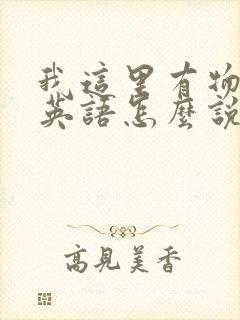 我這里有物
英語怎麼說
高見美香